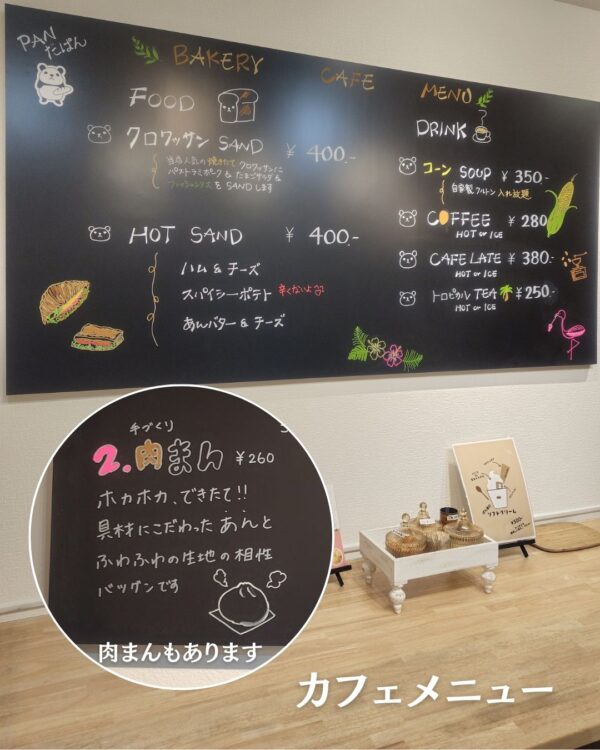 PAN
だぱん
BAKERY CAFE MENU
FOOD
クロワッサン SAND ¥400.-
当店人気の焼きたて クロワッサンに
パストラミポーク & たまごサラダ &
を SANDします
HOT SAND ¥400.-
ハム & チーズ
スパイシーポテト 辛くないよ
あんバター & チーズ
DRINK
コーン SOUP ¥350.-
自家製クルトン 入れ放題
COFFEE ¥280
HOT or ICE
CAFE LATE ¥380.-
HOT or ICE
トロピカル TEA ¥250.-
HOT or ICE
手づくり
2.肉まん ¥260
ホカホカ、できたて!!
具材にこだわった あんと
ふわふわの生地の相性
バツグンです
肉まんもあります
ソフトクリーム
カフェメニュー